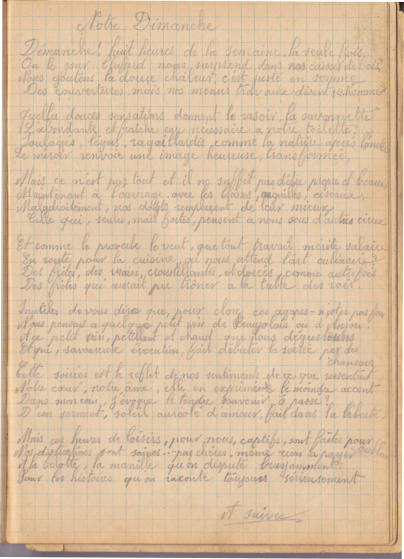 Notre Dimanche
Dimanche! huit heures de la semaine, la seule fois
Où le jour nous surprend dans nos caisses de bois
Nous goûtons la douce chaleur, c'est juste en somme
Des couvertures, mais nos menus travaux disent
Quelles douces sensations donnent le rasoir, la savonnette
L'eau et fraîche eau nécessaire à notre toilette
Soulagés, rasés, ragaillardis comme la nature après l'ondée
Le miroir renvoie une image heureuse, transformée.
Mais ce n'est pas tout et il ne suffit pas d'être propre et beau
Maintenant à l'ouvrage avec les aiguilles, ciseaux,
Maladroitement, nos doigts de leur mieux
Celle qui, seule, mais forte, pensent à nous sous d'autres cieux
Et comme le proverbe le veut, que tout travail mérite salaire
En route pour la cuisine, où nous attend l'art culinaire?
Des frites, des vraies, croustillantes, et dorées, comme autrefois
Des frites qui aurait pu trôner à la table des rois.
Inutile de vous dire que, pour clore ces agapes
Nous pensons à quelque petit verre de Beaujolais ou d'
A ce petit vin, pétillant et chaud que nous dégustions
Et qui, savoureuse évocation, fait débuter la soirée par des
chansons
Cette soirée est le reflet de nos sentiments de ce que ressentent
Notre cœur, notre âme, elle en exprime le moindre accent
Dans mon cœur, j'évoque le tendre souvenir, passé?
D'un serment, soleil auréolé d'amour, fait dans la
Mais ces heures de loisirs, pour nous, captifs, sont faites pour
Nos distractions sont saines - pas chères, même rien à payer
A la belotte, la manille qu'on dispute bruyamment
Pour les histoires qu'on raconte toujours sérieusement
et suivre